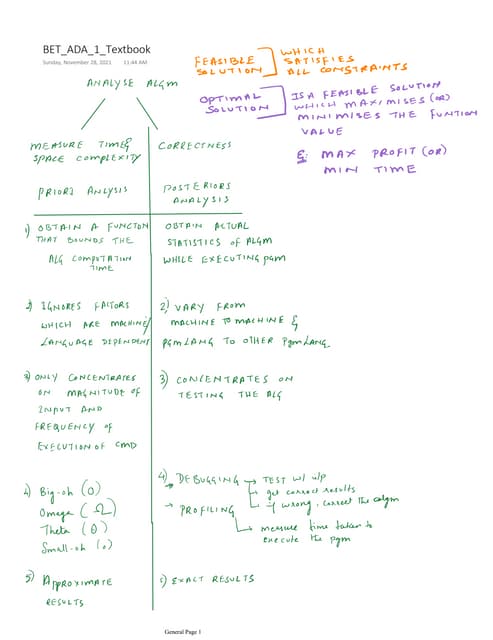 BET_ADA_1_Textbook
Sunday, November 28, 2021 11:44 AM
FEASIBLE SOLUTION
WHICH
SATISFIES
ALL CONSTRAINTS
OPTIMAL SOLUTION
IS A FEASIBLE SOLUTION
WHICH MAXIMISES (OR)
MINIMISES THE FUNTION
VALUE
Eg: MAX PROFIT (OR)
MIN TIME
ANALYSE ALGM
MEASURE TIME &
SPACE COMPLEXITY
CORRECTNESS
PRIORI ANLYSIS
POSTERIORS
ANALYSIS
1) OBTAIN A FUNCTON
THAT BOUNDS THE
ALG COMPUTATION
TIME
OBTAIN ACTUAL
STATISTICS OF ALGM
WHILE EXECUTING PGM
2) IGNORES FACTORS
WHICH ARE MACHINE/
LANGUAGE DEPENDENT
2) VARY FROM
MACHINE TO MACHINE &
PGM LANG TO OTHER PGM LANG
3) ONLY CONCENTRATES
ON MAGNITUDE OF
INPUT AND
FREQUENCY OF
EXECUTION OF CMD
3) CONCENTRATES ON
TESTING THE ALG
4) Big-oh (O)
Omega (Ω)
Theta (θ)
Small-oh (o)
4) → DEBUGGING → TEST W/ i/p
→ get correct results
→ if wrong, correct the algm
→ PROFILING
→ measure time taken to
execute the pgm
5) APPROXIMATE
RESULTS
5) EXACT RESULTS
General Page 1